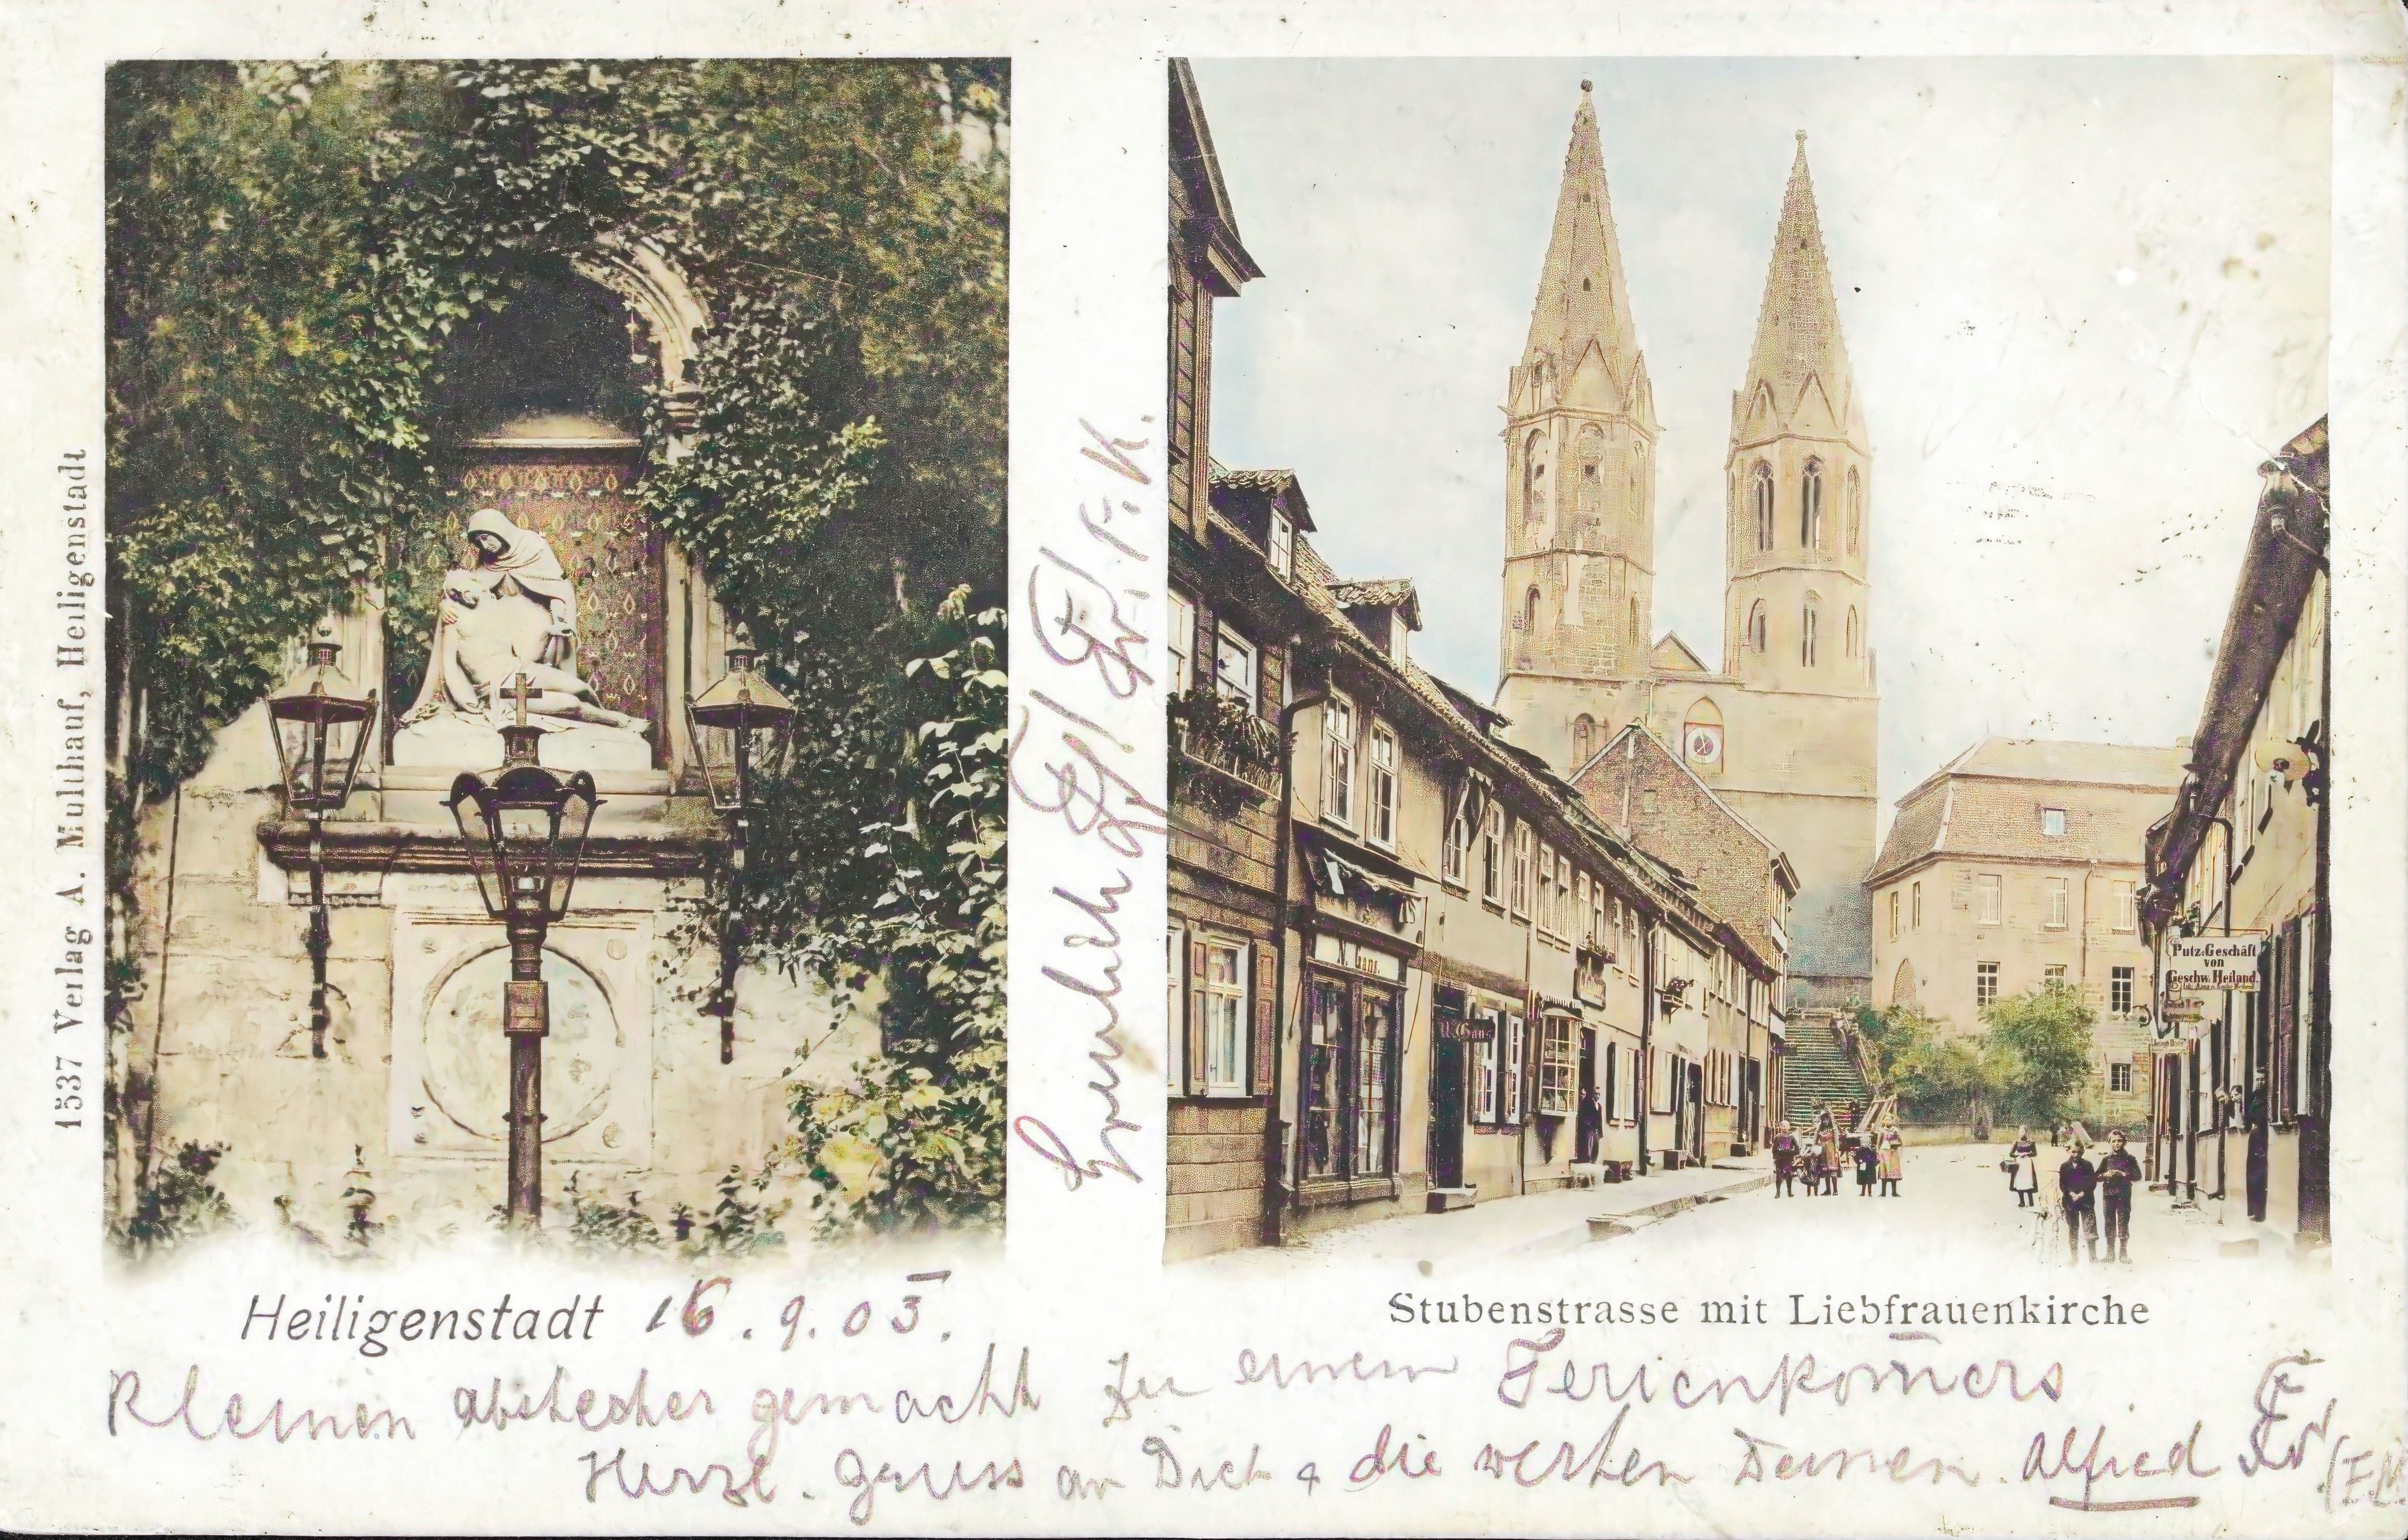 1537 Verlag A. Multhauf, Heiligenstadt
Heiligenstadt 16. 9. 05.
Stubenstrasse mit Liebfrauenkirche
N. Gans.
N. Gans
Putz-Geschäft
von
Geschw. Heiland.
Kleinen abstecher gemacht zu einem Ferienkom̄ers
Herzl. Gruss an Dich & die werten Deinen. Alfred